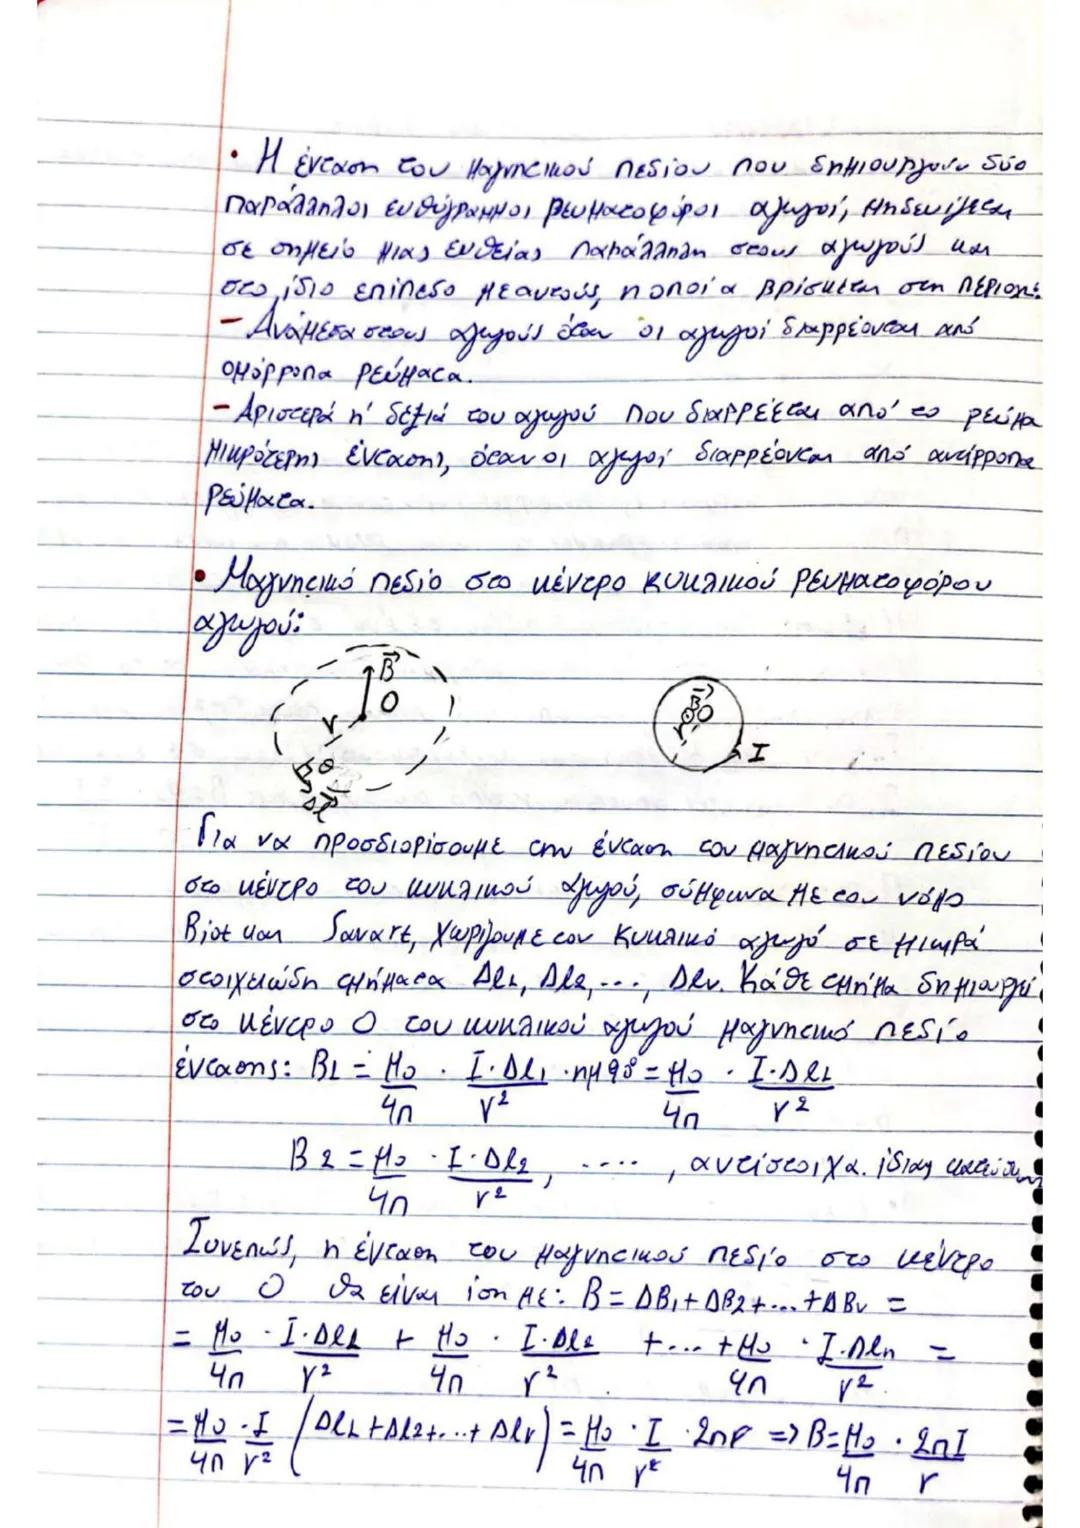 • Η ένταση του μαγνητικού πεδίου που δημιουργούν δύο
παράλληλοι ευθύγραμμοι ρευματοφόροι αγωγοί, μηδενίζεται
σε σημείο μιας ευθείας παράλληλη στους αγωγούς και
στο ίδιο επίπεδο με αυτούς, η οποία βρίσκεται στη περιοχή:
- Ανάμεσα στους αγωγούς όταν οι αγωγοί διαρρέονται από
ομόρροπα ρεύματα.
- Αριστερά ή δεξιά του αγωγού που διαρρέεται από το ρεύμα
μικρότερης έντασης, όταν οι αγωγοί διαρρέονται από αντίρροπα
ρεύματα.
• Μαγνητικό πεδίο στο κέντρο κυκλικού ρευματοφόρου
αγωγού:
B⃗
O
r
B⃗
O
r
I
Δl⃗
Για να προσδιορίσουμε την ένταση του μαγνητικού πεδίου
στο κέντρο του κυκλικού αγωγού, σύμφωνα με τον νόμο
Biot και Savart, χωρίζουμε τον κυκλικό αγωγό σε μικρά
στοιχειώδη τμήματα Δl1, Δl2, ..., Δlν. Κάθε τμήμα δημιουργεί
στο κέντρο O του κυκλικού αγωγού μαγνητικό πεδίο
έντασης: B1 = μο/4π · I·Δl1/r² · ημ90° = μο/4π · I·Δl1/r²
B2 = μο/4π · I·Δl2/r², ...., αντίστοιχα. ίδιας κατεύθυνσης
Συνεπώς, η ένταση του μαγνητικού πεδίο στο κέντρο
του O θα είναι ίση με: B = ΔB1 + ΔB2 + ... + ΔBν =
= μο/4π · I·Δl1/r² + μο/4π · I·Δl2/r² + ... + μο/4π · I·Δln/r² =
= μο/4π · I/r² (Δl1 + Δl2 + ... + Δlν) = μο/4π · I/r² · 2πr => B = μο/4π · 2πI/r